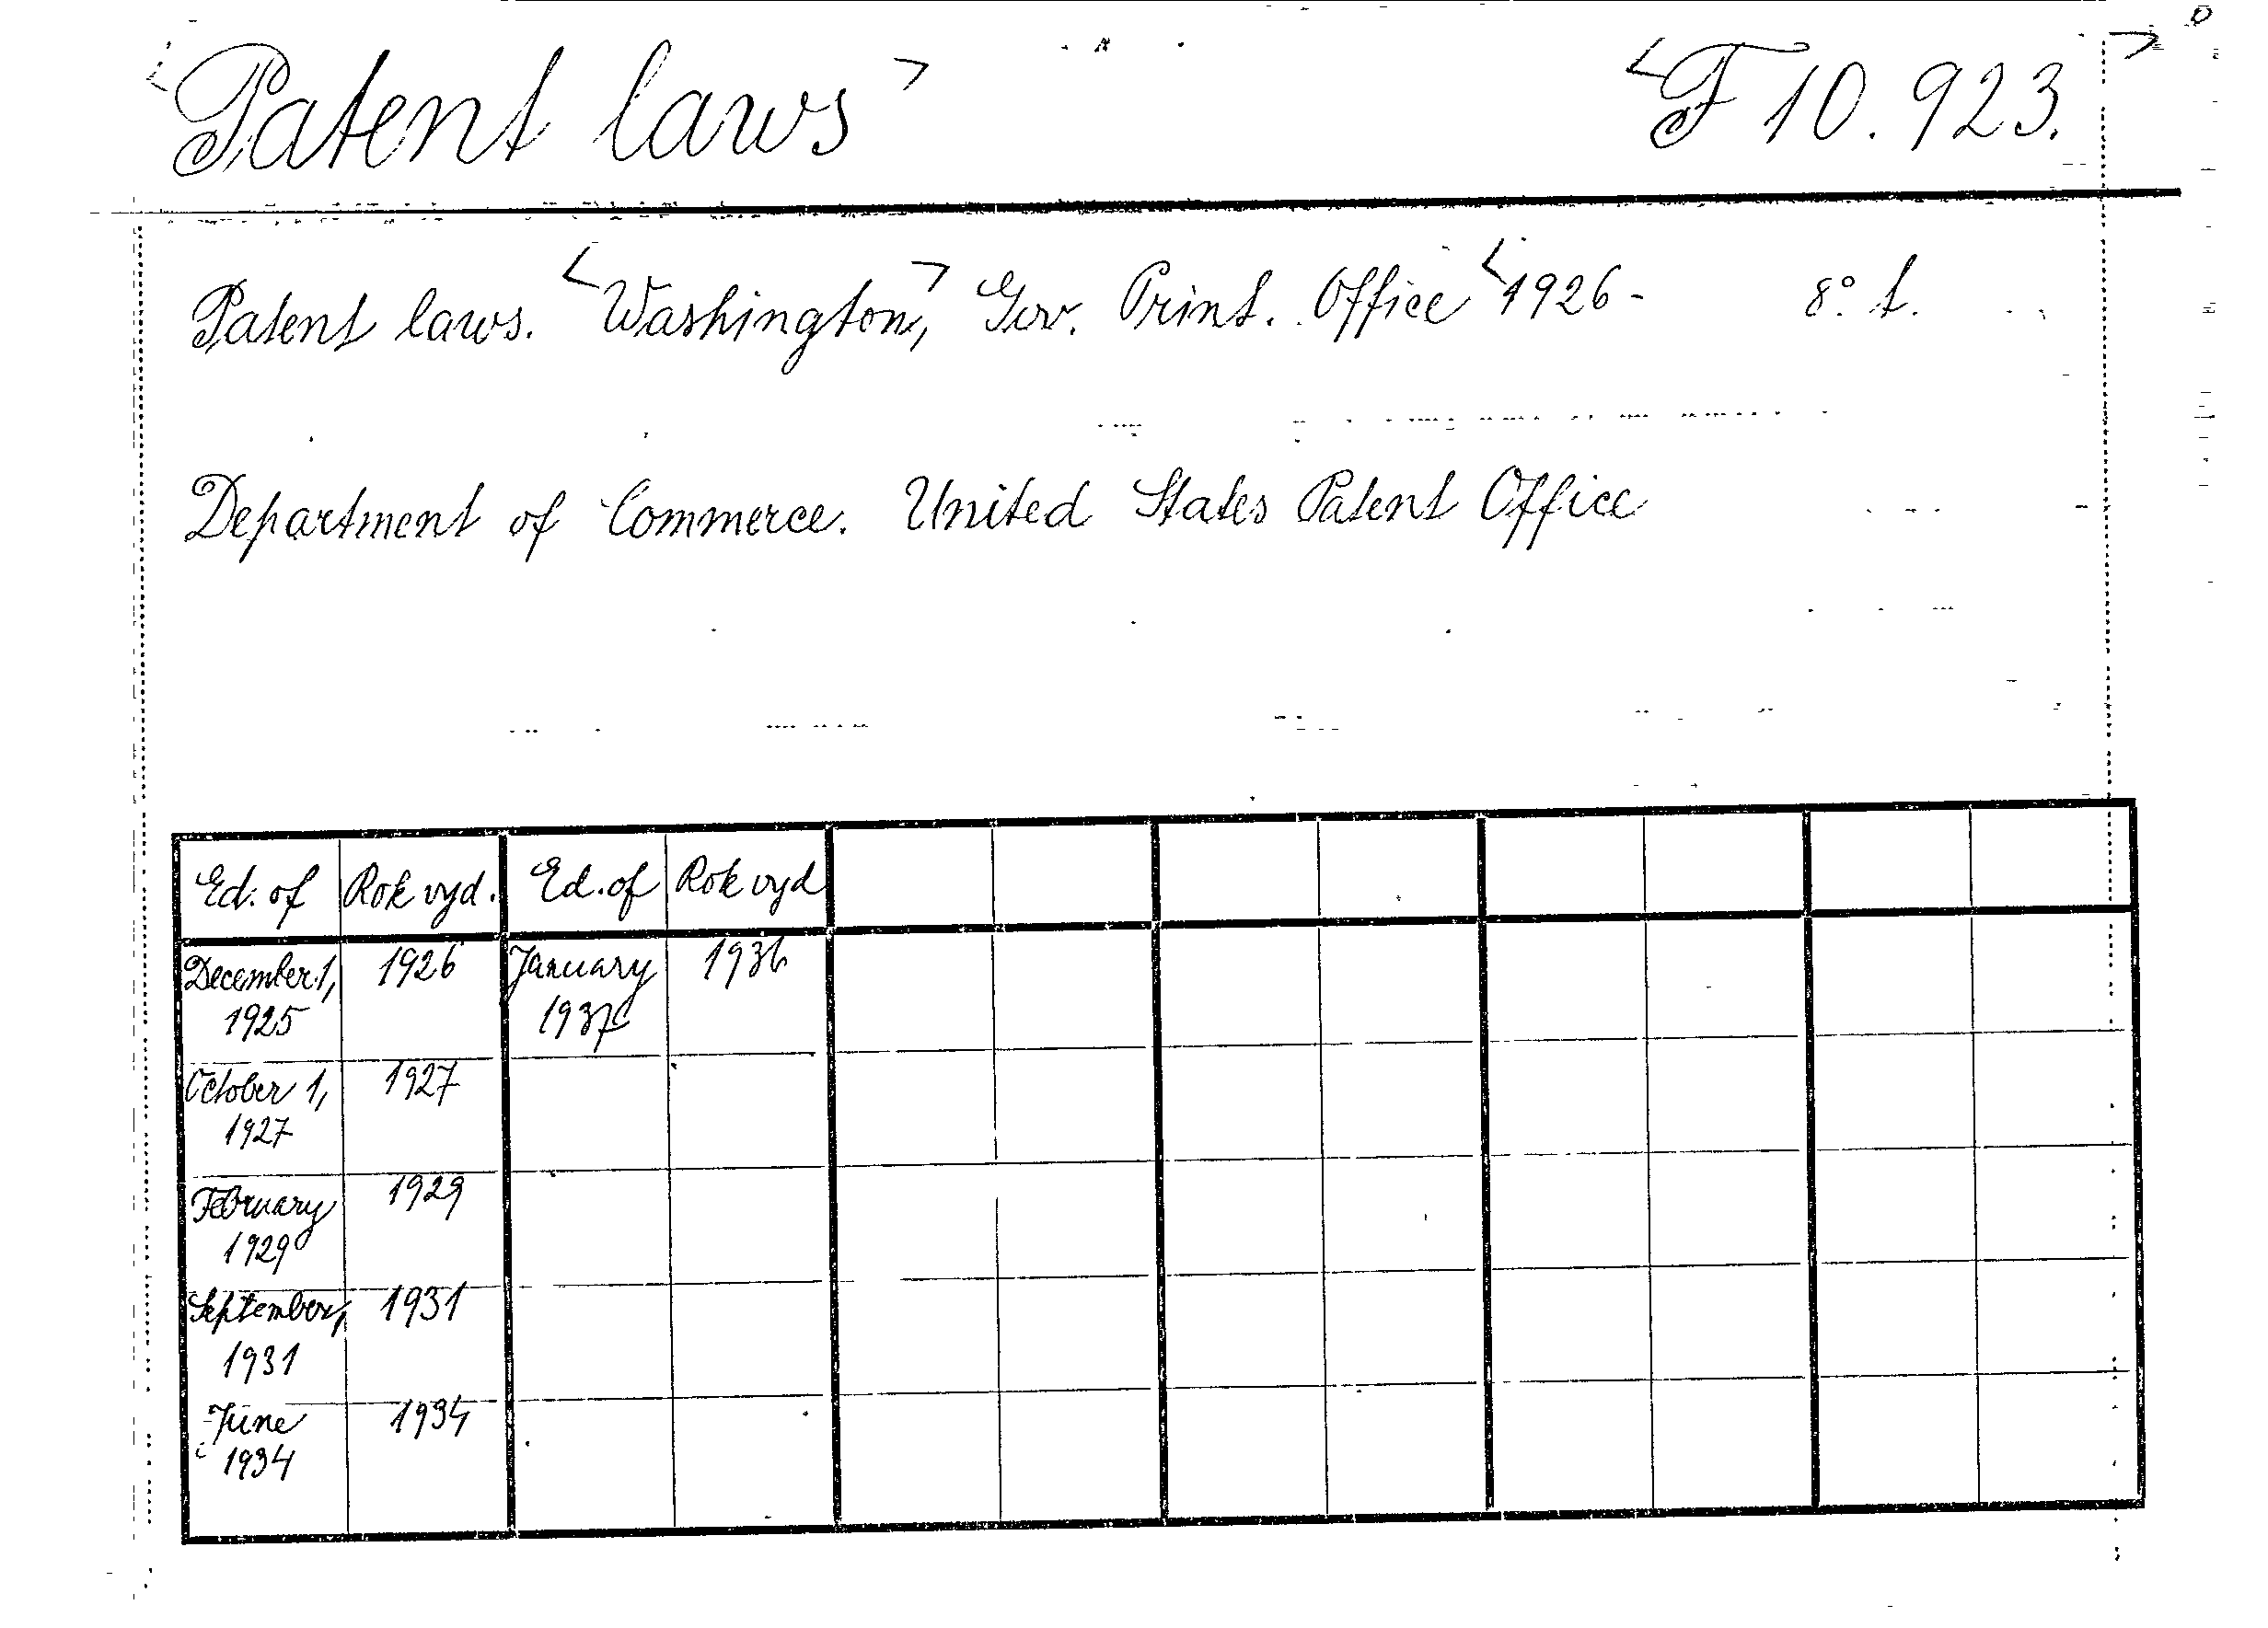 <Patent laws>
<F 10.923.>
Patent laws. <Washington>, Gov. Print. Office <1926- 8° t.
Department of Commerce. United States Patent Office
Ed. of Rok vyd. Ed. of Rok vyd
December 1, 1926 January 1936
1925 1937
October 1, 1927
1927
February 1929
1929
September, 1931
1931
June 1934
1934